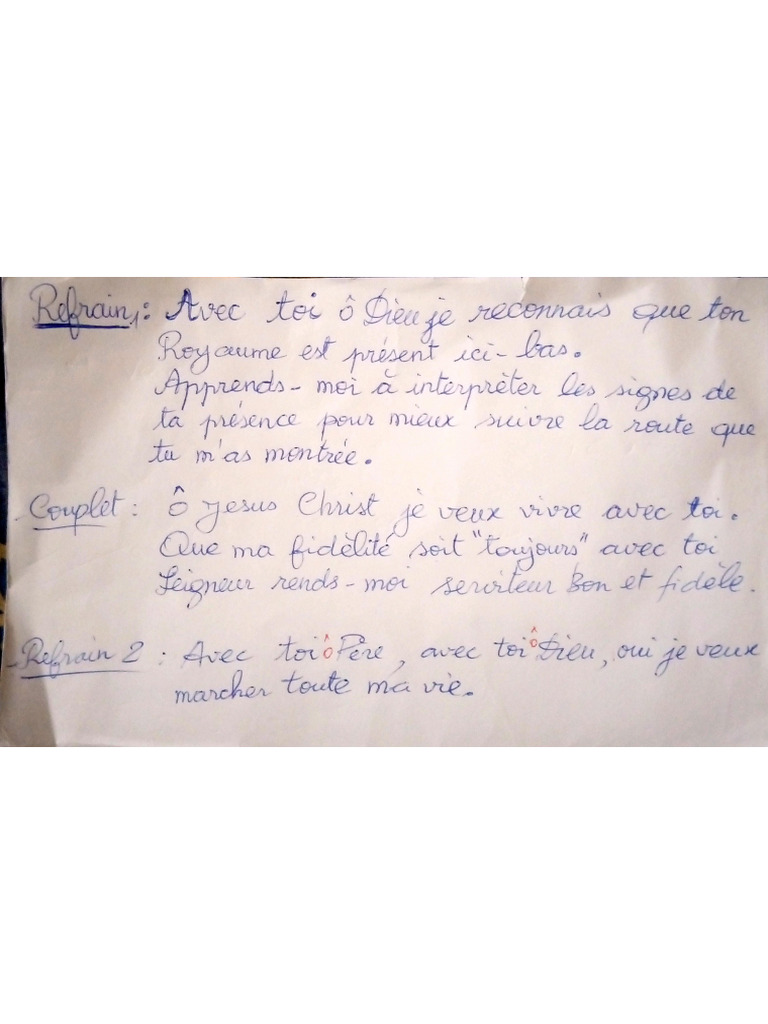 Refrain 1: Avec toi ô Dieu je reconnais que ton
Royaume est présent ici-bas.
Apprends-moi à interpréter les signes de
ta présence pour mieux suivre la route que
tu m'as montrée.
Couplet : Ô Jesus Christ je veux vivre avec toi.
Que ma fidélité soit "toujours" avec toi
Seigneur rends-moi serviteur bon et fidèle.
Refrain 2 : Avec toi ô Père, avec toi ô Dieu, oui je veux
marcher toute ma vie.